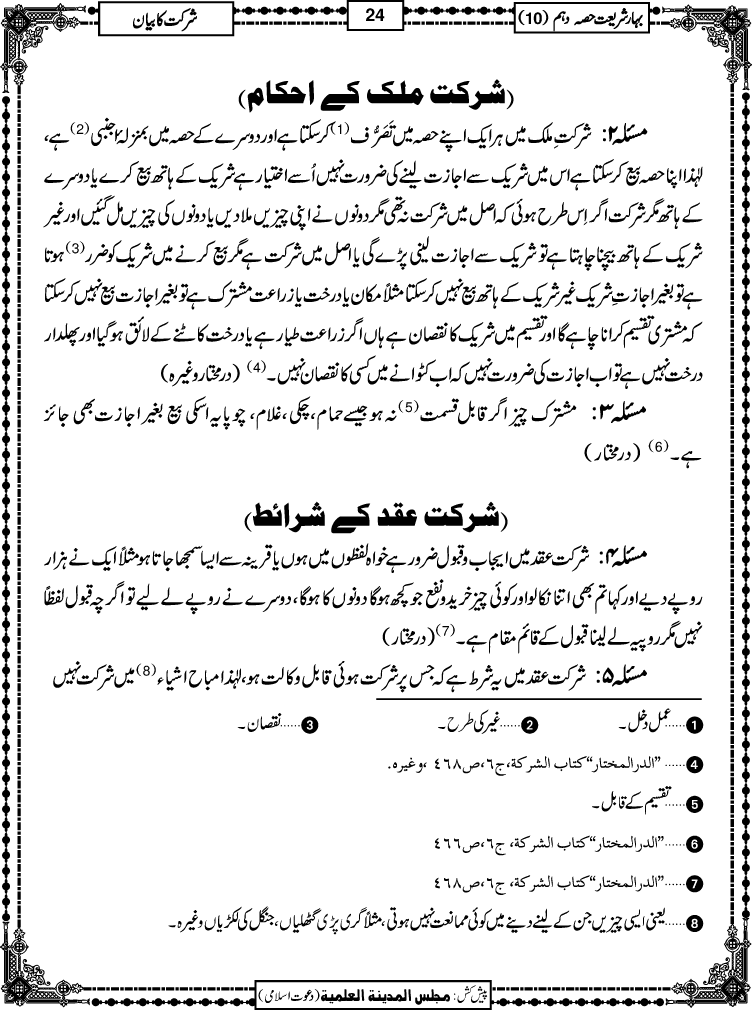 بہار شریعت حصہ دہم (10)
24
شرکت کا بیان
(شرکت ملک کے احکام)
مسئلہ ۲: شرکتِ ملک میں ہر ایک اپنے حصہ میں تَصَرُّف (1) کر سکتا ہے اور دوسرے کے حصہ میں بمنزلۂ اجنبی (2) ہے،
لہٰذا اپنا حصہ بیع کر سکتا ہے اس میں شریک سے اجازت لینے کی ضرورت نہیں اُسے اختیار ہے شریک کے ہاتھ بیع کرے یا دوسرے
کے ہاتھ مگر شرکت اگر اِس طرح ہوئی کہ اصل میں شرکت نہ تھی مگر دونوں نے اپنی چیزیں ملا دیں یا دونوں کی چیزیں مل گئیں اور غیر
شریک کے ہاتھ بیچنا چاہتا ہے تو شریک سے اجازت لینی پڑے گی یا اصل میں شرکت ہے مگر بیع کرنے میں شریک کو ضرر (3) ہوتا
ہے تو بغیر اجازتِ شریک غیر شریک کے ہاتھ بیع نہیں کر سکتا مثلاً مکان یا درخت یا زراعت مشترک ہے تو بغیر اجازت بیع نہیں کر سکتا
کہ مشتری تقسیم کرانا چاہے گا اور تقسیم میں شریک کا نقصان ہے ہاں اگر زراعت طیار ہے یا درخت کاٹنے کے لائق ہو گیا اور پھلدار
درخت نہیں ہے تو اب اجازت کی ضرورت نہیں کہ اب کٹوانے میں کسی کا نقصان نہیں۔ (4) (درمختار وغیرہ)
مسئلہ ۳: مشترک چیز اگر قابل قسمت (5) نہ ہو جیسے حمام، چکی، غلام، چوپایہ اسکی بیع بغیر اجازت بھی جائز
ہے۔ (6) (درمختار)
(شرکت عقد کے شرائط)
مسئلہ ۴: شرکت عقد میں ایجاب و قبول ضرور ہے خواہ لفظوں میں ہوں یا قرینہ سے ایسا سمجھا جاتا ہو مثلاً ایک نے ہزار
روپے دیے اور کہا تم بھی اتنا نکالو اور کوئی چیز خریدو نفع جو کچھ ہوگا دونوں کا ہوگا، دوسرے نے روپے لے لیے تو اگرچہ قبول لفظاً
نہیں مگر روپیہ لے لینا قبول کے قائم مقام ہے۔ (7) (درمختار)
مسئلہ ۵: شرکت عقد میں یہ شرط ہے کہ جس پر شرکت ہوئی قابل وکالت ہو، لہٰذا مباح اشیاء (8) میں شرکت نہیں
1 ......عمل دخل۔ 2 ......غیر کی طرح۔ 3 ......نقصان۔
4 ......”الدرالمختار“ کتاب الشركة، ج٦، ص٤٦٨، وغیرہ.
5 ......تقسیم کے قابل۔
6 ......”الدرالمختار“ کتاب الشركة، ج٦، ص٤٦٦
7 ......”الدرالمختار“ کتاب الشركة، ج٦، ص٤٦٨
8 ......یعنی ایسی چیزیں جن کے لینے دینے میں کوئی ممانعت نہیں ہوتی، مثلاً گری پڑی گٹھلیاں، جنگل کی لکڑیاں وغیرہ۔
پیش کش: مجلس المدینة العلمیة (دعوت اسلامی)